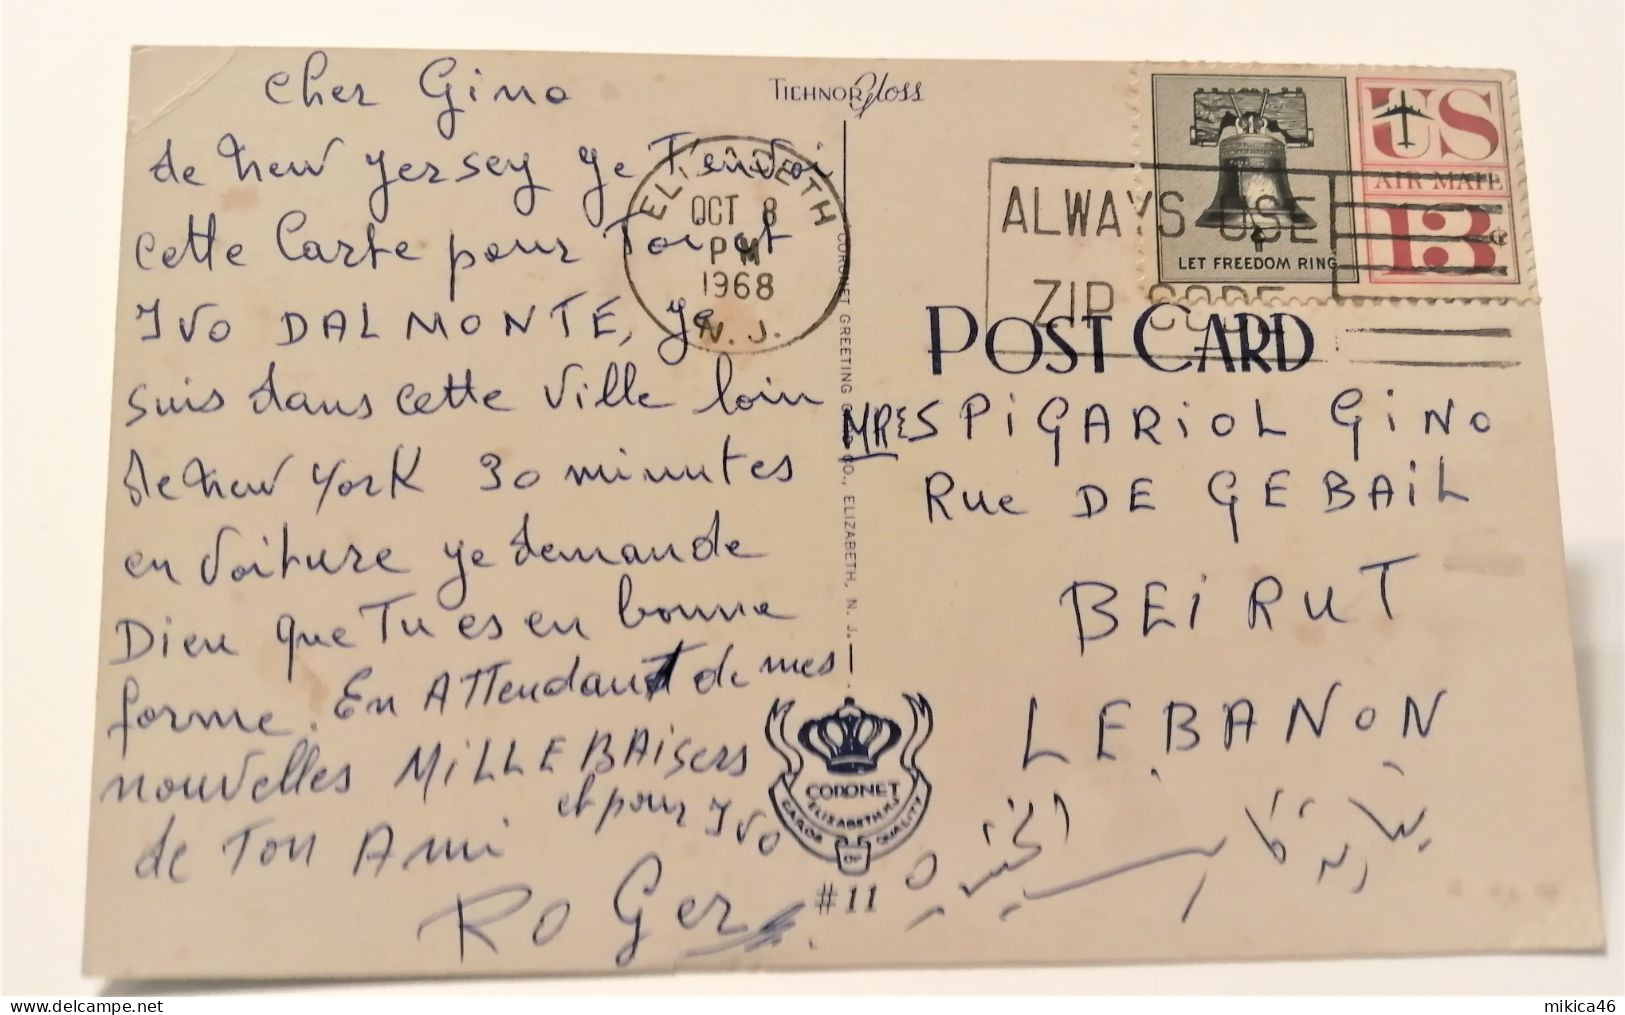 Cher Gino
de New Yersey ye T'envoi
cette Carte pour Toi et
Ivo DALMONTE, ye
suis dans cette Ville loin
de New York 30 minutes
en Voiture ye demande
Dieu que Tu es en bonne
forme. En ATTendant de mes
nouvelles MiLLE BAisers
et pour Ivo
de Ton Ami
ROGer
TICHNOR Gloss
ELIZABETH
OCT 8
PM
1968
N. J.
CORONET GREETING CARD CO., ELIZABETH, N. J.
ALWAYS USE
ZIP CODE
LET FREEDOM RING
US
AIR MAIL
13¢
POST CARD
SPiGARiOL GiNO
Rue DE GEBAiL
BEiRUT
LEBANON
CORONET
ELIZABETH, N.J.
CARDS OF QUALITY
#11
mikica46